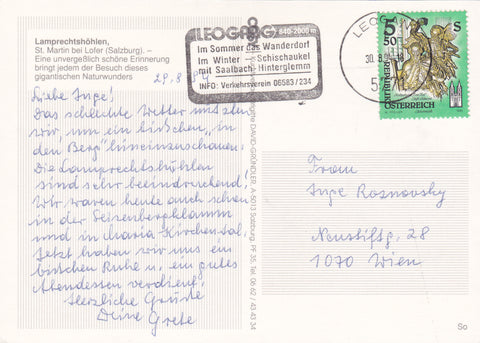 Lamprechtshöhlen,
St. Martin bei Lofer (Salzburg). –
Eine unvergeßlich schöne Erinnerung
bringt jedem der Besuch dieses
gigantischen Naturwunders
29.8.94
Liebe Inge!
Das schlechte Wetter nutzten
wir, um ein bisschen „in
den Berg" hineinzuschauen.
Die Lamprechtshöhlen
sind sehr beeindruckend!
Wir waren heute auch schon
in der Seisenbergklamm
und in Maria Kirchental.
Jetzt haben wir uns ein
bisschen Ruhe u. ein gutes
Abendessen verdient!
Herzliche Grüße
Deine Grete
LEOGANG 840-2000 m
Im Sommer das Wanderdorf
Im Winter – Schischaukel
mit Saalbach-Hinterglemm
INFO: Verkehrsverein 06583/234
LEOGANG
30. 8.
5
5.50
S
ÖSTERREICH
DAVID-GRÜNDLER, A-5013 Salzburg, PF 35 Tel. 06 62 / 43 43 34
Frau
Inge Roznovsky
Neustiftg. 28
1070 Wien
So